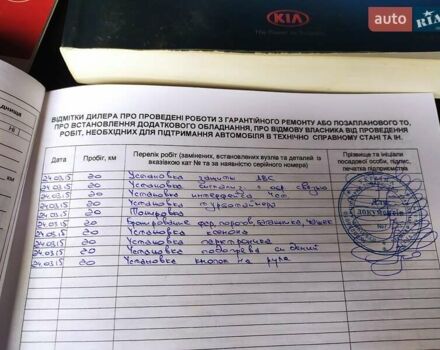 auto RIA
KIA
The Power to Surprise
ВІДМІТКИ ДИЛЕРА ПРО ПРОВЕДЕНІ РОБОТИ З ГАРАНТІЙНОГО РЕМОНТУ АБО ПОЗАПЛАНОВОГО ТО,
ПРО ВСТАНОВЛЕННЯ ДОДАТКОВОГО ОБЛАДНАННЯ, ПРО ВІДМОВУ ВЛАСНИКА ВІД ПРОВЕДЕННЯ
РОБІТ, НЕОБХІДНИХ ДЛЯ ПІДТРИМАННЯ АВТОМОБІЛЯ В ТЕХНІЧНО СПРАВНОМУ СТАНІ ТА ІН.
Дата Пробіг, км Перелік робіт (замінених, встановлених вузлів та деталей із вказівкою кат № та за наявністю серійного номера) Прізвище та ініціали посадової особи, підпис, печатка підприємства
24.03.15 20 Установка защиты ДВС
24.03.15 20 Установка сигнализ с обр связью
24.03.15 20 Установка интерфейса
24.03.15 20 Установка турботаймера
24.03.15 20 Тонировка
24.03.15 20 Бронирование фар, порогов, багажника,
24.03.15 20 Установка ксенона
24.03.15 20 Установка парктроника
24.03.15 20 Установка подогрева сидений
24.03.15 20 Установка кнопок на руль
Для документів